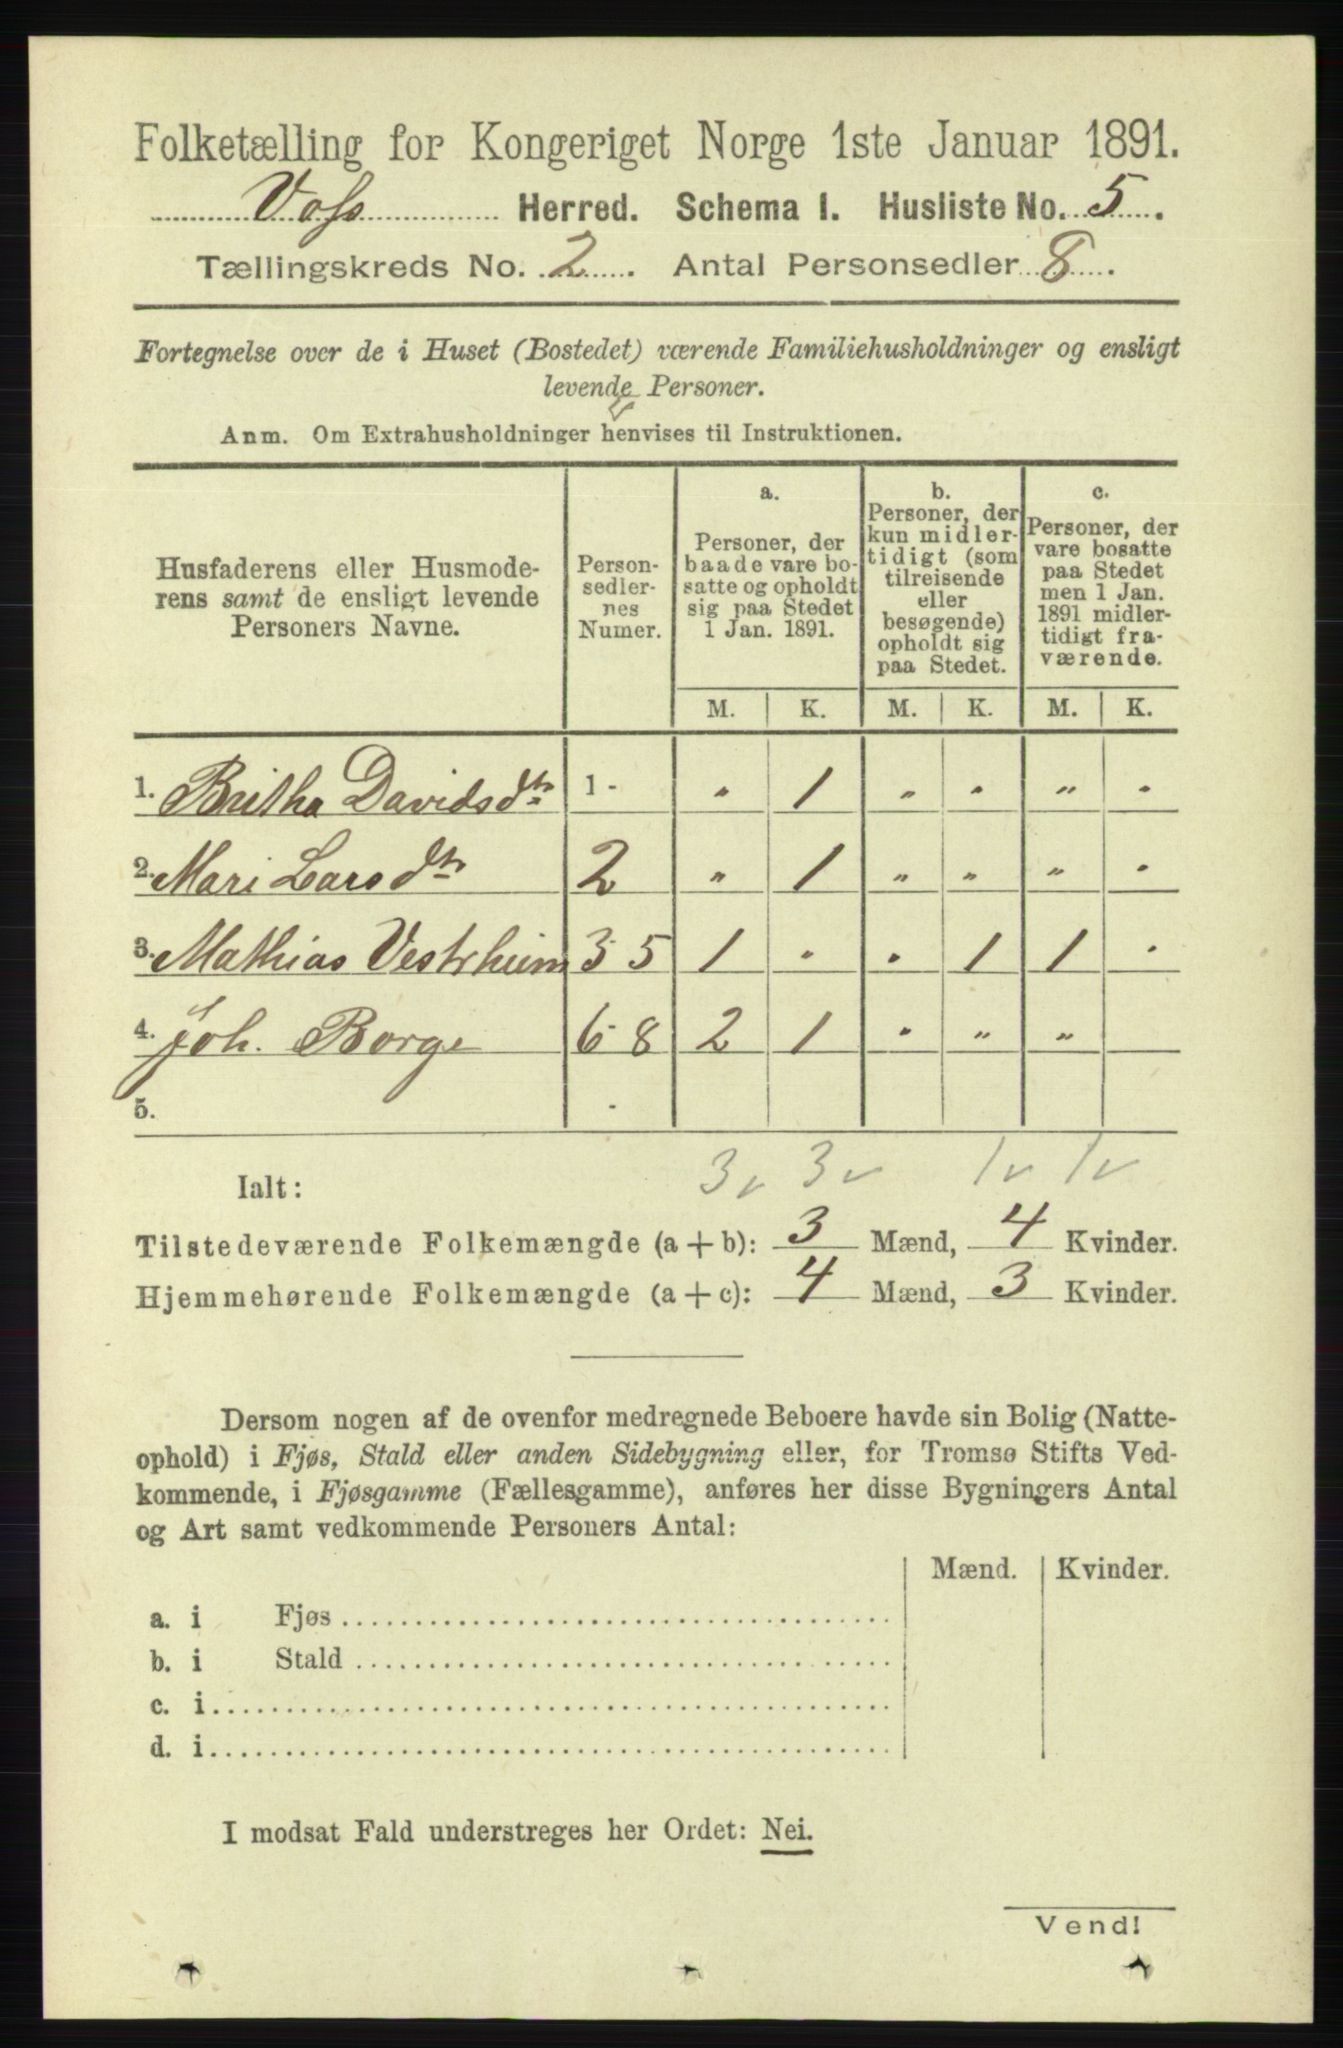 Folketælling for Kongeriget Norge 1ste Januar 1891.
Voss Herred. Schema I. Husliste No. 5.
Tællingskreds No. 2. Antal Personsedler 8.
Fortegnelse over de i Huset (Bostedet) værende Familiehusholdninger og ensligt
levende Personer.
Anm. Om Extrahusholdninger henvises til Instruktionen.
Husfaderens eller Husmode-
rens samt de ensligt levende
Personers Navne.
Person-
sedler-
nes
Numer.
a.
Personer, der
baade vare bo-
satte og opholdt
sig paa Stedet
1 Jan. 1891.
b.
Personer, der
kun midler-
tidigt (som
tilreisende
eller
besøgende)
opholdt sig
paa Stedet.
c.
Personer, der
vare bosatte
paa Stedet
men 1 Jan.
1891 midler-
tidigt fra-
værende.
M. K. M. K. M. K.
1. Britha Davidsdtr 1 - „ 1 „ · „ ·
2. Mari Larsdtr 2 „ 1 „ „ „ ·
3. Mathias Vestrheim 3-5 1 · · 1 1 ·
4. Joh. Borge 6-8 2 1 · „ „
5. ·
3 v 3 v 1 v 1 v
Ialt:
Tilstedeværende Folkemængde (a + b): 3 Mænd, 4 Kvinder.
Hjemmehørende Folkemængde (a + c): 4 Mænd, 3 Kvinder.
Dersom nogen af de ovenfor medregnede Beboere havde sin Bolig (Natte-
ophold) i Fjøs, Stald eller anden Sidebygning eller, for Tromsø Stifts Ved-
kommende, i Fjøsgamme (Fællesgamme), anføres her disse Bygningers Antal
og Art samt vedkommende Personers Antal:
Mænd. Kvinder.
a. i Fjøs
b. i Stald
c. i
d. i
I modsat Fald understreges her Ordet: Nei.
Vend!